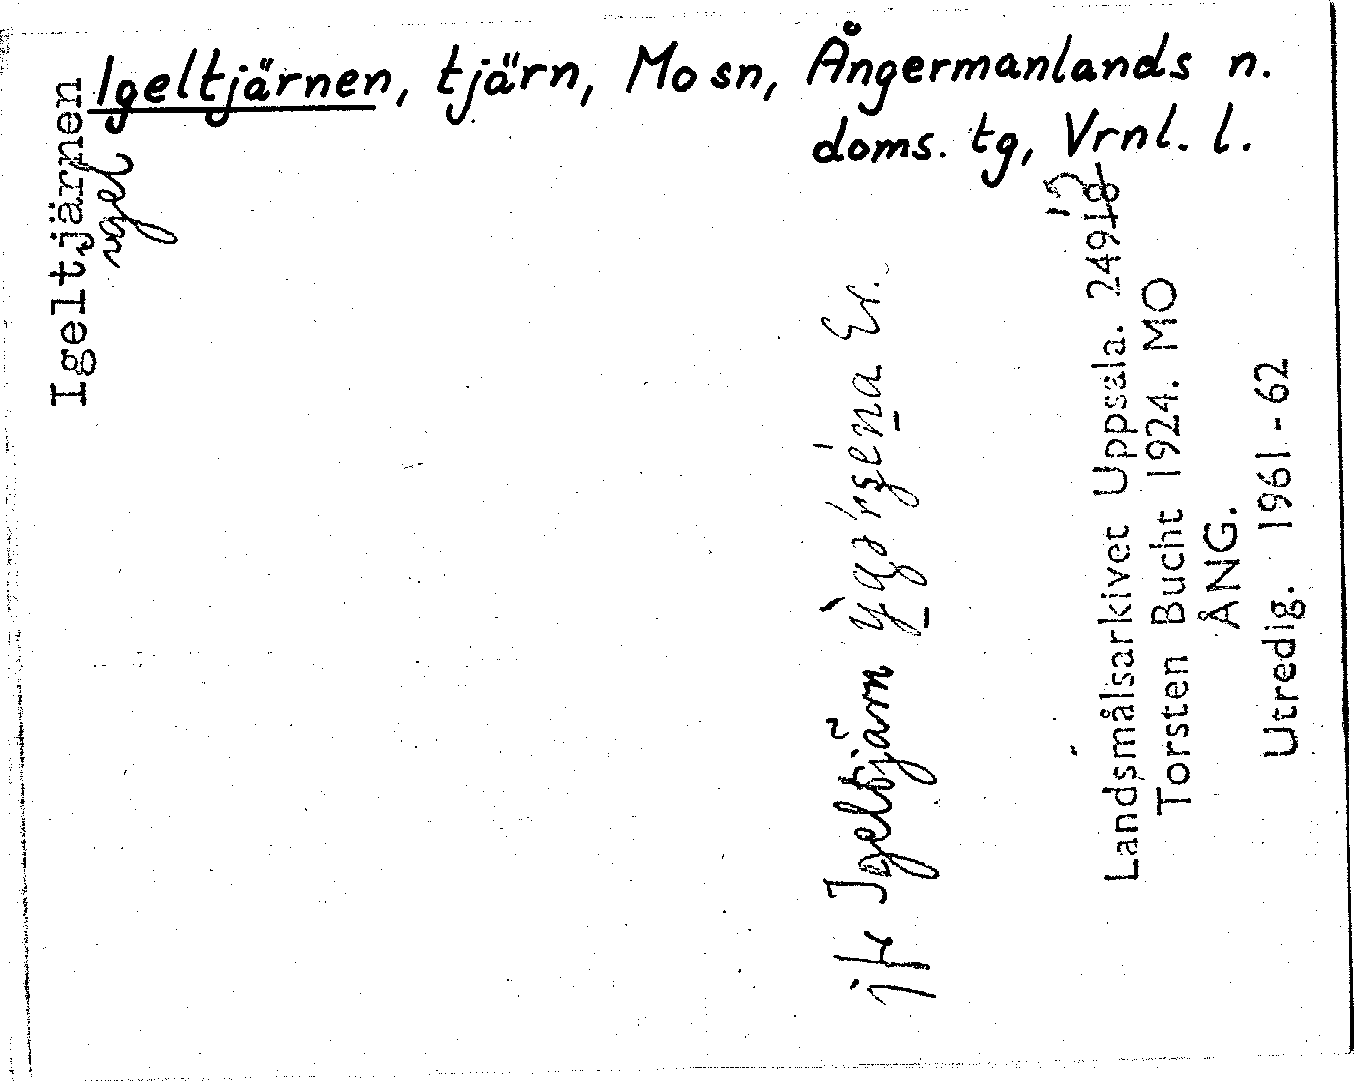 Igeltjärnen, tjärn, Mo sn, Ångermanlands n.
doms. tg, Vrnl. l.
Igeltjärnen
igel
jfr Igeltjärn
Er.
17
Landsmålsarkivet Uppsala. 24918
Torsten Bucht 1924. MO
ÅNG.
Utredig. 1961-62